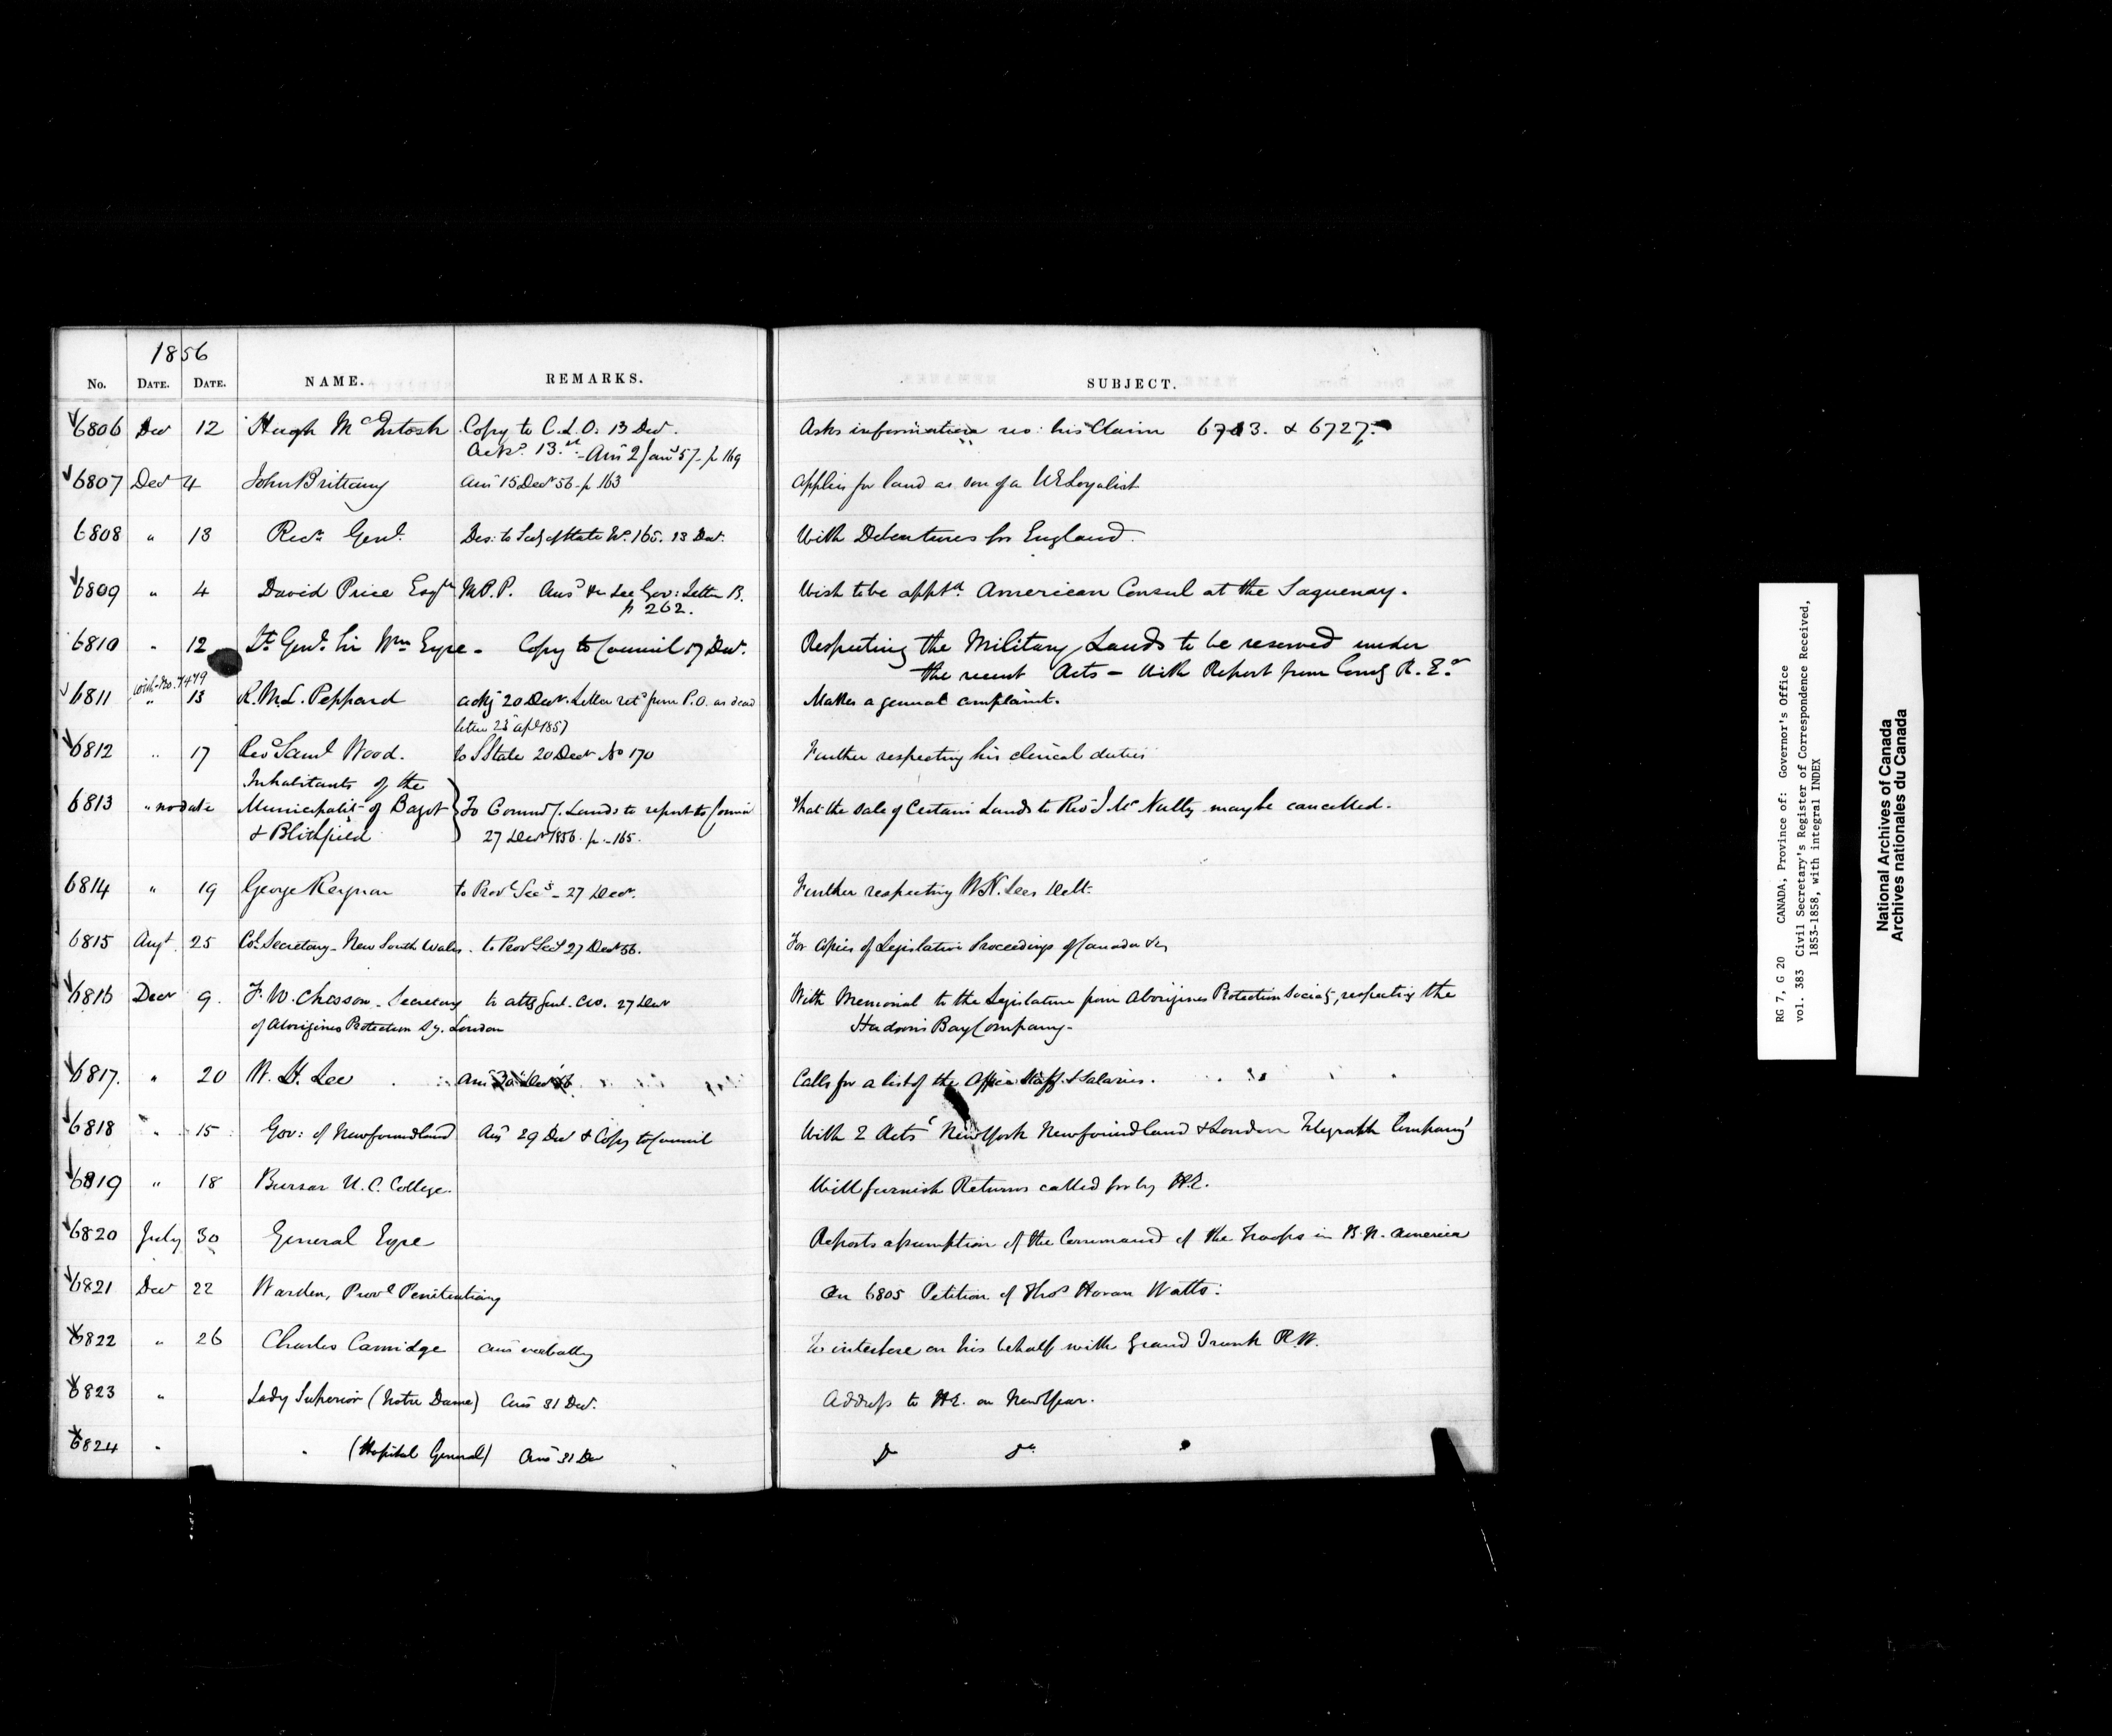 1856
No. DATE. DATE. NAME. REMARKS. SUBJECT.
6806 Decr 12 Hugh McIntosh Copy to C.L.O. 13 Decr. Asks information res: his Claim 6713. & 6727.
Ackd. 13th - Ansd 2 Jany 57 - p 169
6807 Decr 4 John Brittany Ansd 15 Decr 56 - p 163 Applies for land as son of a UE Loyalist
6808 " 13 Recr Genl. Des: to Secy of State No. 165. 13 Decr. With Debentures for England.
6809 " 4 David Price Esqre M.P.P. Ansd See Gov: Letter B. Wish to be apptd. American Consul at the Saguenay.
p 262.
6810 " 12 Lt Genl. Sir Wm Eyre - Copy to Council 17 Decr. Respecting the Military Lands to be reserved under
the recent Acts - With Report from Comg R.E.
with No. 7479
6811 " 13 K.M.L. Peppard ackg 20 Decr. Letter retd from P.O. as dead Makes a general complaint.
letter 23 apl 1857
6812 " 17 Revd Saml Wood. to S State 20 Decr No 170 Further respecting his clerical duties
Inhabitants of the
6813 " no date Municipality of Bagot To Commr C. Lands to report to Council That the sale of Certain Lands to Revd J. McNulty may be cancelled.
& Blithfield 27 Decr 1856. p. 165.
6814 " 19 George to Provl Secy - 27 Decr. Further respecting W.H. Lees Debt.
6815 Augt 25 Coll Secretary - New South Wales. to Provl Secy 27 Decr 56. For copies of Legislative Proceedings of Canada &c
6816 Decr 9. F.W. Chesson - Secretary to atty Genl. C.W. 27 Decr With Memorial to the Legislature from Aborigines Protection Society, respecting the
of Aborigines Protection Sy. London Hudson's Bay Company -
6817. " 20 W. H. Lee Ansd 30 Decr 56. Calls for a list of the Office Staff & Salaries.
6818 " 15 Gov: of Newfoundland Ansd 29 Decr & Copy to Council With 2 Acts New York Newfoundland & London Telegraph Company
6819 " 18 Bursar U.C. College. Will furnish Returns called for by H.E.
6820 July 30 General Eyre Reports assumption of the Command of the Troops in B.N. America
6821 Decr 22 Warden, Provl Penitentiary On 6805 Petition of Thos Horan Watts.
6822 " 26 Charles Camidge Ansd verbally To interfere on his behalf with Grand Trunk R.W.
6823 " Lady Superior (Notre Dame) Ansd 31 Decr. Address to H.E. on New Year.
6824 " " (Hopital General) Ansd 31 Decr Do Do
RG 7, G 20 CANADA, Province of: Governor's Office
vol. 383 Civil Secretary's Register of Correspondence Received,
1853-1858, with integral INDEX
National Archives of Canada
Archives nationales du Canada